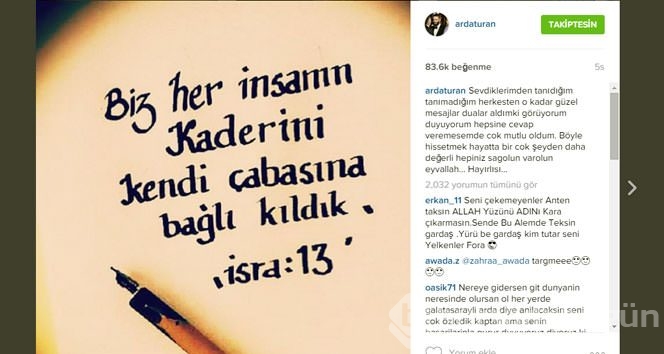 Biz her insanın
Kaderini
kendi çabasına
bağlı kıldık
isra:13
ardaturan
TAKİPTESİN
83.6k beğenme
5s
ardaturan Sevdiklerimden tanıdığım
tanımadığım herkesten o kadar güzel
mesajlar dualar aldımki görüyorum
duyuyorum hepsine cevap
veremesemde cok mutlu oldum. Böyle
hissetmek hayatta bir cok şeyden daha
değerli hepiniz sagolun varolun
eyvallah... Hayırlısı...
2,032 yorumun tümünü gör
erkan_11 Seni çekemeyenler Anten
taksın ALLAH Yüzünü ADINı Kara
çıkarmasın.Sende Bu Alemde Teksin
gardaş .Yürü be gardaş kim tutar seni
Yelkenler Fora 😎
awada.z @zahraa_awada targmeee🙄🙄
🙄🙄
oasik71 Nereye gidersen git dunyanin
neresinde olursan ol her yerde
galatasarayli arda diye anilacaksin seni
cok özledik kaptan ama senin
Yorum ekle